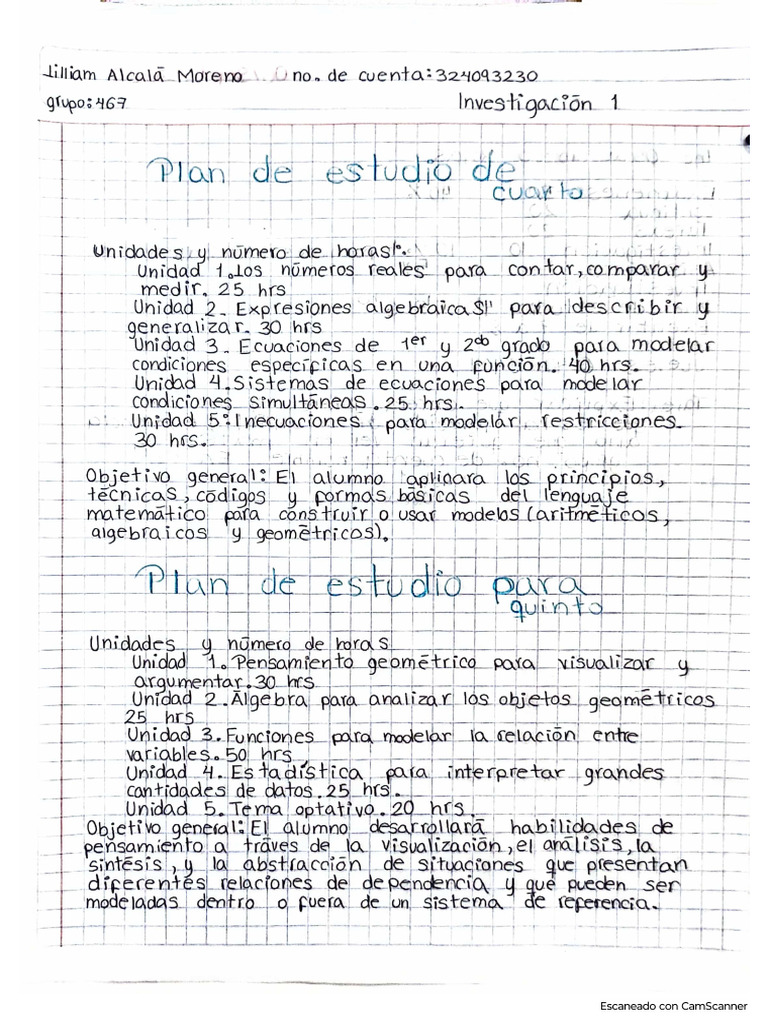 Lilliam Alcalá Moreno no. de cuenta: 324093230
grupo: 467 Investigación 1
Plan de estudio de
cuarto
Unidades y número de horas:
Unidad 1. Los números reales para contar, comparar y
medir. 25 hrs
Unidad 2. Expresiones algebraicas para describir y
generalizar. 30 hrs
Unidad 3. Ecuaciones de 1er y 2do grado para modelar
condiciones específicas en una función. 40 hrs.
Unidad 4. Sistemas de ecuaciones para modelar
condiciones simultáneas. 25 hrs.
Unidad 5: Inecuaciones para modelar restricciones.
30 hrs.
Objetivo general: El alumno aplinara los principios,
técnicas, códigos y formas básicas del lenguaje
matemático para construir o usar modelos (aritméticos,
algebraicos y geométricos).
Plan de estudio para
quinto
Unidades y número de horas
Unidad 1. Pensamiento geométrico para visualizar y
argumentar. 30 hrs
Unidad 2. Álgebra para analizar los objetos geométricos
25 hrs
Unidad 3. Funciones para modelar la relación entre
variables. 50 hrs
Unidad 4. Estadística para interpretar grandes
cantidades de datos. 25 hrs.
Unidad 5. Tema optativo. 20 hrs.
Objetivo general: El alumno desarrollará habilidades de
pensamiento a tráves de la visualización, el análisis, la
sintésis, y la abstracción de situaciones que presentan
diferentes relaciones de dependencia y que pueden ser
modeladas dentro o fuera de un sistema de referencia.
Escaneado con CamScanner